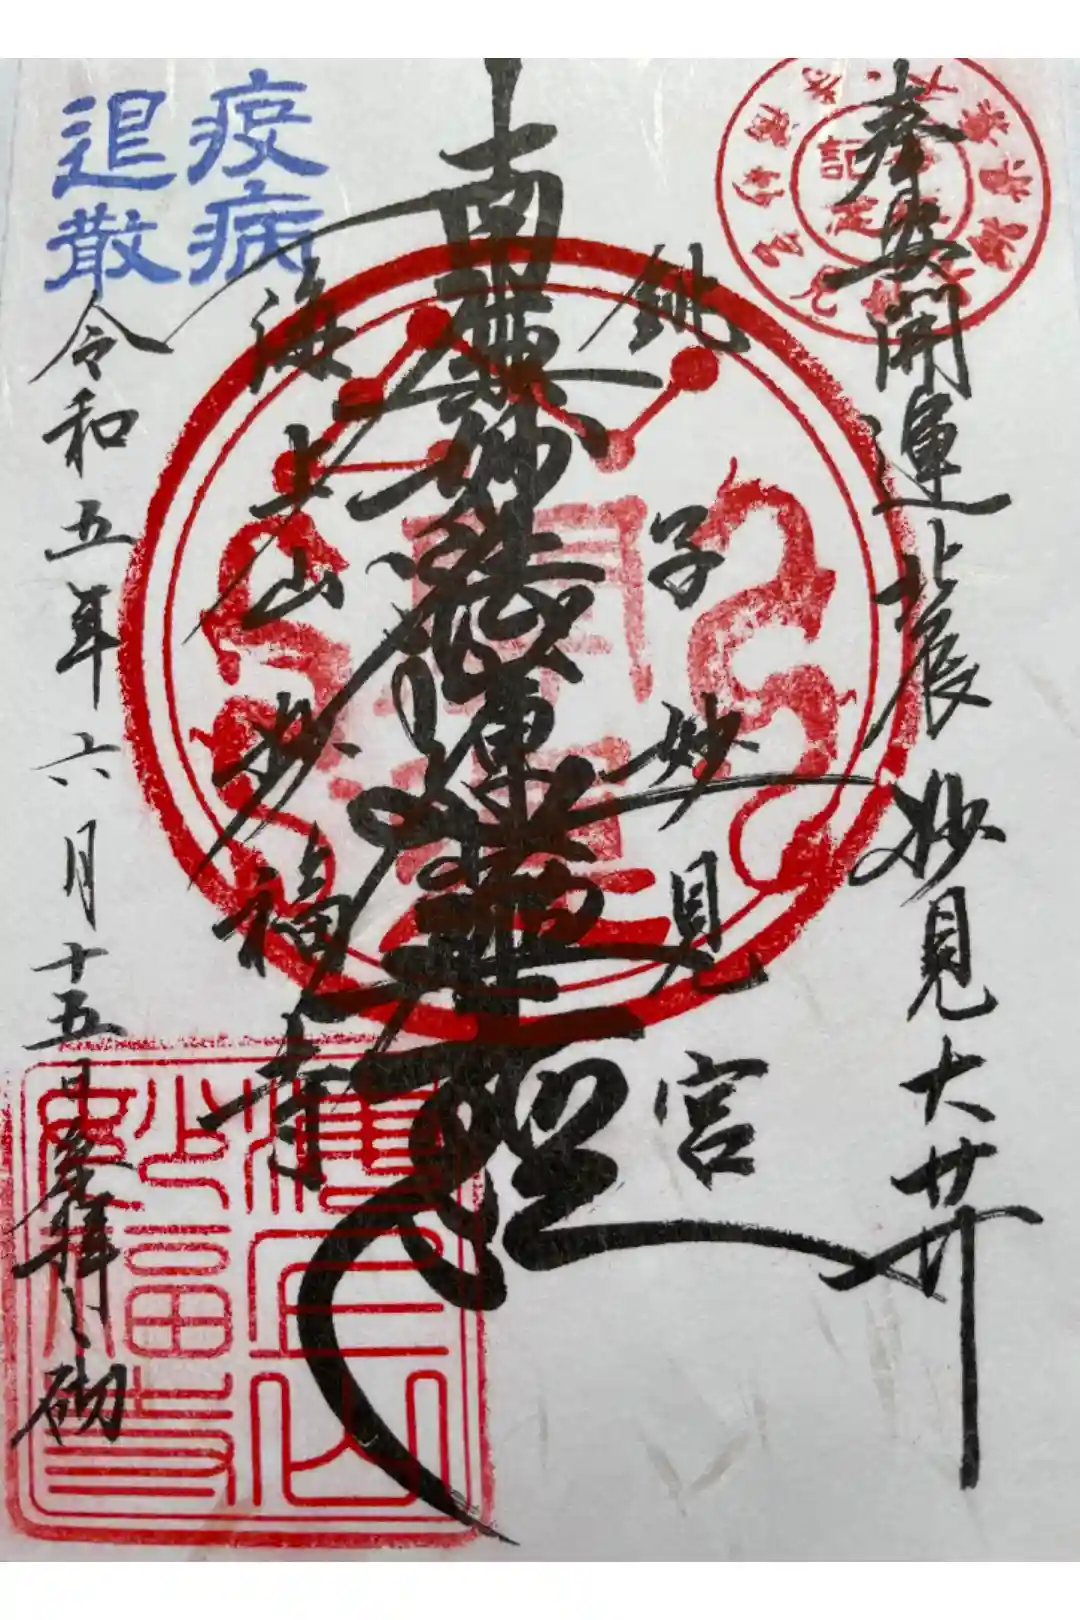 奉安開運北辰妙見大廾
銚子妙見宮
南無妙法蓮華経
海上山妙福寺
令和五年六月十五日参拝之砌
疫病
退散
海上山
妙福寺